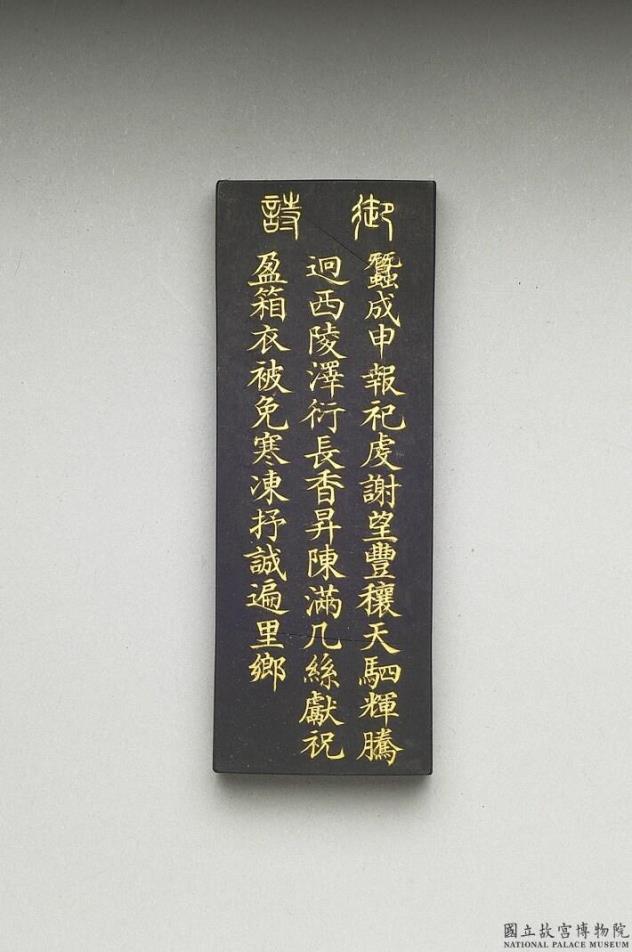 御詩
蠶成申報祀虔謝望豐穰天駟輝騰
迥西陵澤衍長香昇陳滿几絲獻祝
盈箱衣被免寒凍抒誠遍里鄉
國立故宮博物院
NATIONAL PALACE MUSEUM